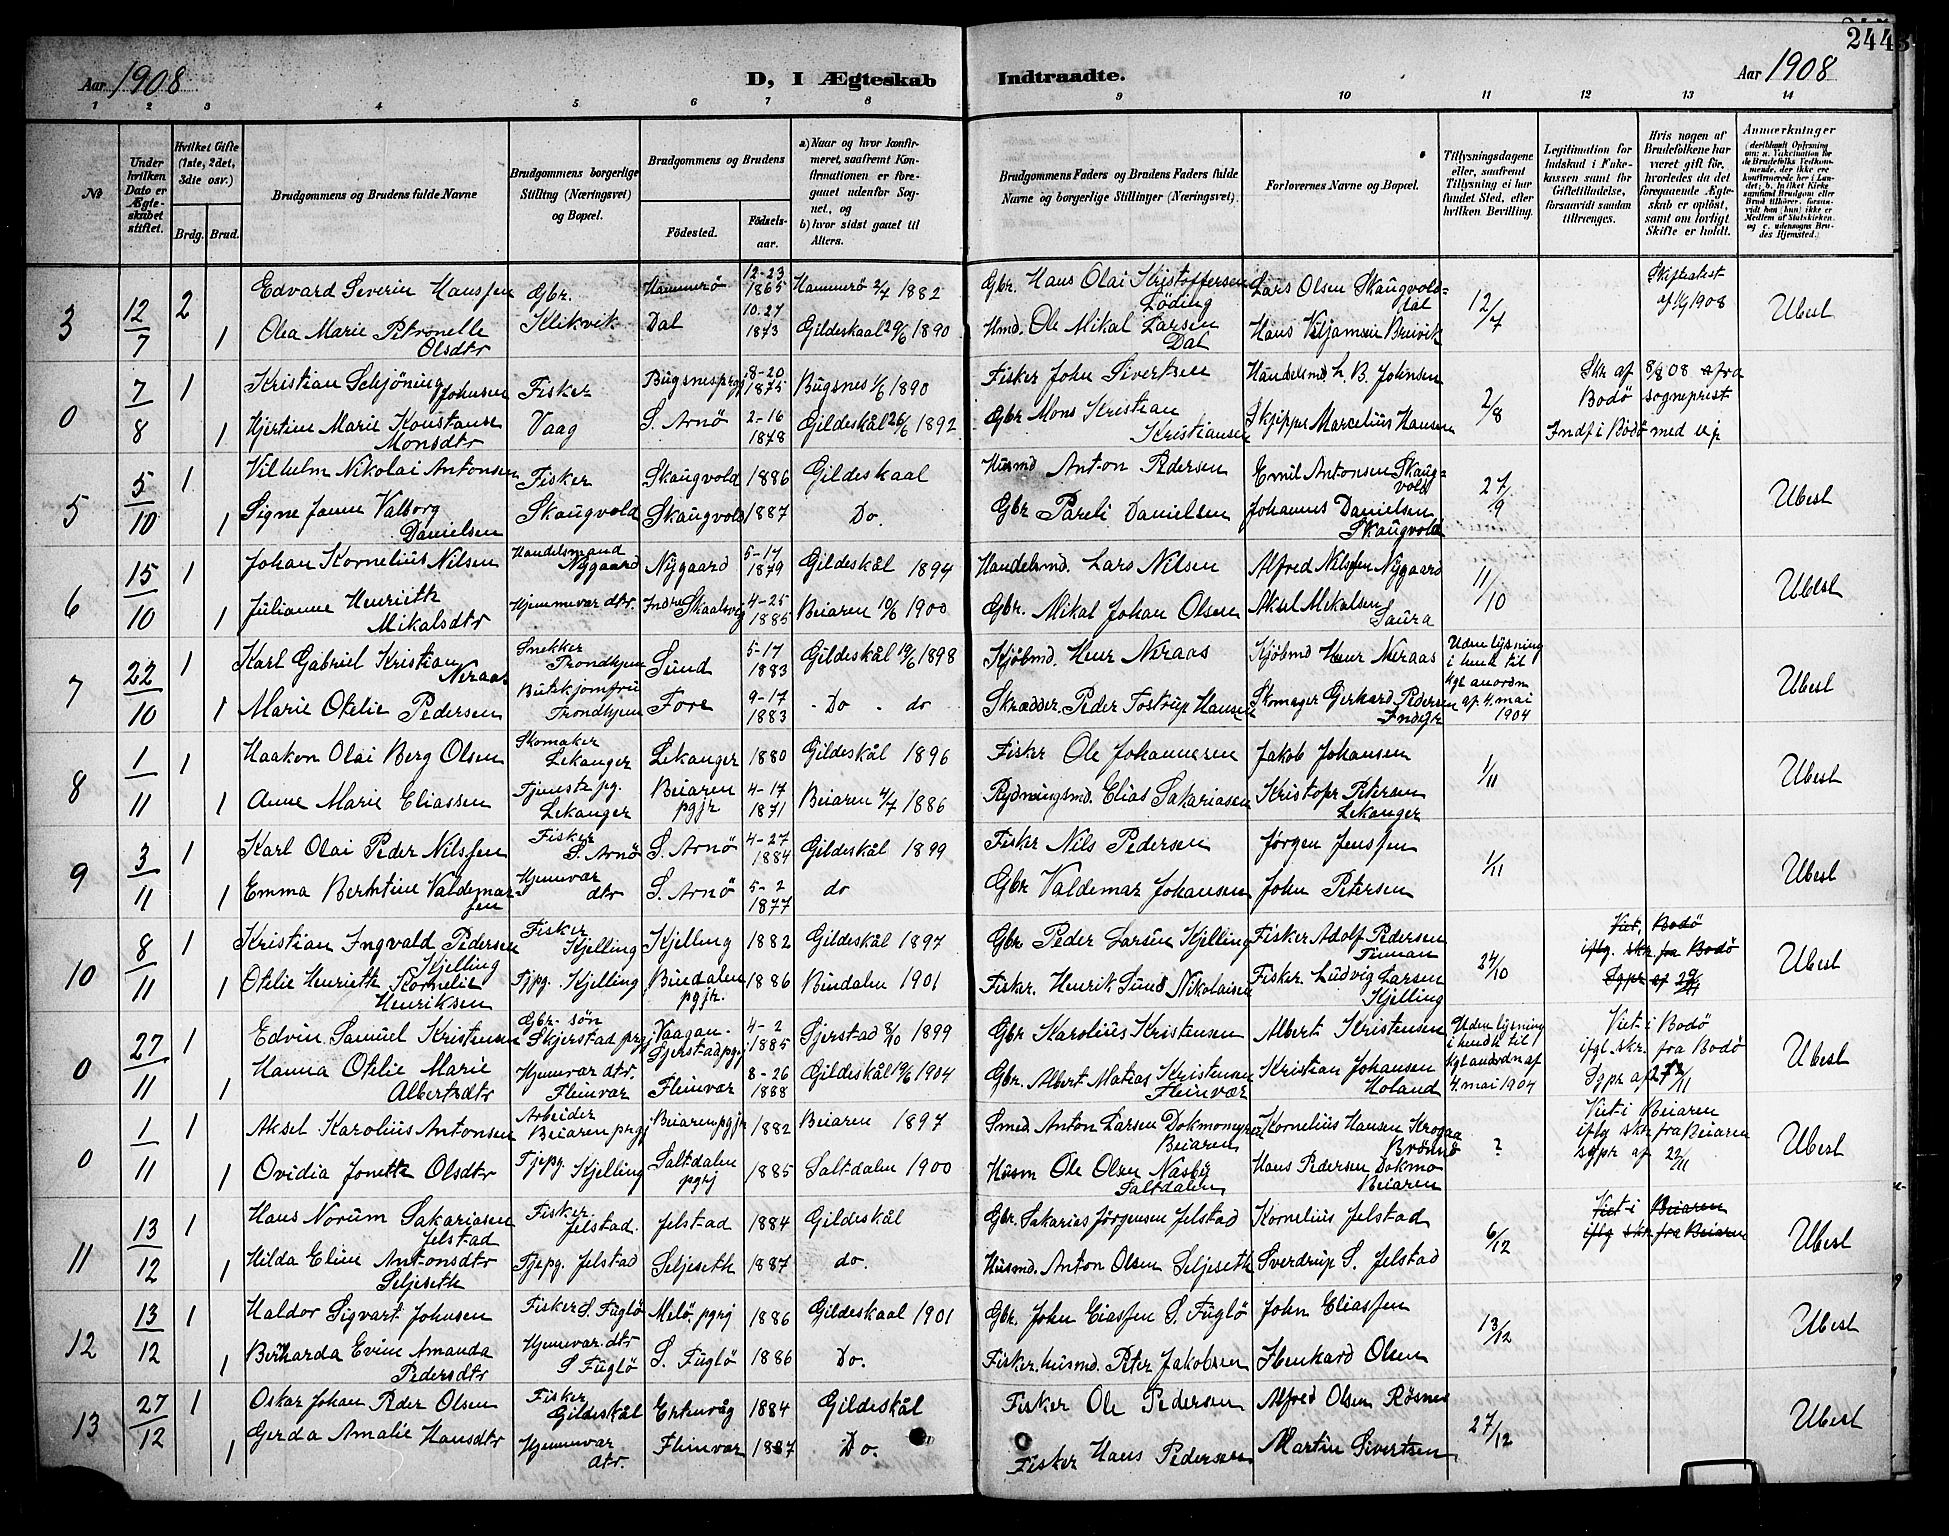 244
Aar 1908 D, I Ægteskab Indtraadte. Aar 1908
1 2 3 4 5 6 7 8 9 10 11 12 13 14
No
Under hvilken Dato er Ægteskabet stiftet.
Hvilket Gifte (1ste, 2det, 3die osv.)
Brdg. Brud.
Brudgommens og Brudens fulde Navne
Brudgommens borgerlige Stilling (Næringsvei) og Bopæl.
Brudgommens og Brudens
Födested. Födselsaar.
a) Naar og hvor konfirmeret, saafremt Konfirmationen er foregaaet udenfor Sognet, og
b) hvor sidst gaaet til Alters.
Brudgommens Faders og Brudens Faders fulde Navne og borgerlige Stillinger (Næringsvei).
Forlovernes Navne og Bopæl.
Tillysningsdagene eller, saafremt Tillysning ei har fundet Sted, efter hvilken Bevilling.
Legitimation for Indskud i Enkekassen samt for Giftetilladelse, forsaavidt saadan tiltrænges.
Hvis nogen af Brudefolkene har været gift för, hvorledes da det foregaaende Ægteskab er oplöst, samt om lovligt Skifte er holdt.
Anmerkninger
3 12/7 2 Edvard Severin Hanssen Gbr. Klikvik Hammerö 12-23 1865 Hammerö 2/7 1882 Gbr. Hans Olai Kristoffersen Löding Lars Olsen Skaugvoldal 12/7 Skifteatest af 1/9 1908 Ubesl
1 Olea Marie Petronelle Olsdtr Dal 10-27 1873 Gildeskaal 29/6 1890 Hmd. Ole Mikal Larsen Dal Hans Viljamsen Breivik
0 7/8 1 Kristian Schjöning Johnsen Fisker Vaag Bugsnes prgj 8-20 1875 Bugsnes 1/6 1890 Fisker John Sivertsen Handelsmd. L. B. Johnsen 2/8 Skr af 8/8 08 fra Bodö sogneprest
1 Hjertine Marie Konstanse Monsdtr S. Arnö 2-16 1878 Gildeskål 26/6 1892 Gbr Mons Kristian Kristiansen Skipper Marcelius Hansen Indf i Bodö med
5 5/10 1 Vilhelm Nikolai Antonsen Fisker Skaugvold Skaugvold 1886 Gildeskaal Husmd Anton Pedersen Emil Antonsen Skaugvold 27/9 Ubesl
1 Signe Janna Valborg Danielsen Skaugvold 1887 Do. Gbr Pareli Danielsen Johannes Danielsen Skaugvold
6 15/10 1 Johan Kornelius Nilsen Handelsmand Nygaard Nygaard 5-17 1879 Gildeskål 1894 Handelsmd. Lars Nilsen Alfred Nilssen Nygaard 11/10 Ubesl
1 Julianne Henriette Mikalsdtr Hjemmevar dtr. Indre Skaalsvig 4-25 1885 Beiaren 10/6 1900 Gbr. Mikal Johan Olsen Aksel Mikalsen Saura
7 22/10 1 Karl Gabriel Kristian Neraas Snekker Trondhjem Sund 5-17 1883 Gildeskål 19/6 1898 Kjöbmd. Henr Neraas Kjöbmd Henr Neraas Uden lysning i henh til kgl anordn af 4. mai 1904 Ubesl
1 Marie Otelie Pedersen Butikjomfru Trondhjem Fore 9-17 1883 Do do Skrædder. Peder Fostrup Hansen Skomager Gerhard Pedersen
8 1/11 1 Haakon Olai Berg Olsen Skomaker Lekanger Lekanger 1880 Gildeskål 1896 Fisker Ole Johannesen Jakob Johansen 1/11 Ubesl
1 Anne Marie Eliassen Tjenstepg. Lekanger Beiaren pgjr 4-17 1871 Beiaren 4/7 1886 Rydningsmd. Elias Sakariasen Kristofr Petersen Lekanger
9 3/11 1 Karl Olai Peder Nilssen Fisker S. Arnö S. Arnö 4-27 1884 Gildeskål 1899 Fisker Nils Pedersen Jörgen Jenssen 1/11 Ubesl
1 Emma Berntine Valdemarsen Hjemmevar dtr S. Arnö 5-2 1877 do Gbr Valdemar Johansen John Petersen
10 8/11 1 Kristian Ingvald Pedersen Kjelling Fisker Kjelling Kjelling 1882 Gildeskål 1897 Gbr Peder Larsen Kjelling Fisker Adolf Pedersen 24/10 Viet, Bodö iflg. skr fra Bodö Sgpr af Ubesl
1 Otelie Henriette Kornelie Henriksen Tjpg. Kjelling Bindalen pgjr. 1886 Bindalen 1901 Fisker. Henrik Sund Nikolaisen Fisker Ludvig Larsen Kjelling
0 27/11 1 Edvin Samuel Kristensen Gbr. sön Skjerstad prgj Vaagan. Sjerstad pgj 4-2 1885 Sjerstad 8/10 1899 Gbr Karolius Kristensen Albert Kristensen Uden lysning i henh til kgl anordn af 4. mai 1904 Viet i Bodö ifgl. skr. fra Bodö Sgpr af 27/11 Ubesl
1 Hanna Otelie Marie Albertsdtr Hjemmevar dtr. Fleinvær Fleinvær 8-26 1888 Gildeskål 19/6 1904 Gbr. Albert Matias Kristensen Fleinvær Kristian Johansen Holand
0 1/11 1 Aksel Karolius Antonsen Arbeider Beiaren prgj Beiaren pgjr 1882 Beiaren 1897 Smed. Anton Larsen Dokmo Beiaren Kornelius Hansen ? Viet i Beiaren iflg skr fra Beiaren sgpr af 22/11 Ubesl
1 Ovidia Jonette Olsdtr Tjepg. Kjelling Saltdalen pgrj 1885 Saltdalen 1900 Husm Ole Olsen Næsby Saltdalen Hans Pedersen Dokmo Beiaren
11 13/12 1 Hans Norum Sakariasen Jelstad Fisker. Jelstad. Jelstad 1884 Gildeskål Gbr. Sakarias Jörgensen Jelstad Kornelius Jelstad 6/12 Viet i Beiaren iflg skr fra Beiaren Ubesl
1 Hilda Eline Antonsdtr Seljeseth Tjepg. Jelstad Seljeseth 1887 do. Husmd. Anton Olsen Seljeseth Sverdrup S. Jelstad
12 13/12 1 Haldor Sigvart Johnsen Fisker S. Fuglö Melö. pgrj 1886 Gildeskaal 1901 Gbr. John Eiassen S. Fuglö John Eliassen 13/12 Ubesl
1 Berharda Evine Amanda Pedersdtr Hjemmevar. dtr S Fuglö S. Fuglö 1886 Do. Fisker. husmd. Peter Jakobsen Ebenhard Olsen
13 27/12 1 Oskar Johan Peder Olsen Fisker Gildeskål Erkenvåg 1884 Gildeskål Fisker Ole Pedersen Alfred Olsen Rösnes 27/12 Ubesl
1 Gerda Amalie Hansdtr Hjemmevar dtr. Fleinvær 1887 Do. Fisker Hans Pedersen Martin Sivertsen